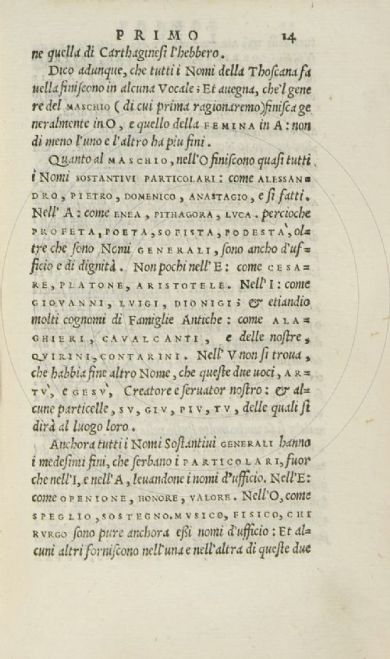 PRIMO 14
ne quella di Carthaginesi l'hebbero.
Dico adunque, che tutti i Nomi della Thoscana fa
uella finiscono in alcuna Vocale: Et auegna, che'l gene
re del MASCHIO (di cui prima ragionaremo) finisca ge
neralmente in O, e quello della FEMINA in A: non
di meno l'uno e l'altro ha piu fini.
Quanto al MASCHIO, nell'O finiscono quasi tutti
i Nomi SOSTANTIVI PARTICOLARI: come ALESSAN=
DRO, PIETRO, DOMENICO, ANASTAGIO, e si fatti.
Nell' A: come ENEA, PITHAGORA, LVCA. percioche
PROFETA, POETA, SOFISTA, PODESTA', ol=
tre che sono Nomi GENERALI, sono ancho d'uf=
ficio e di dignità. Non pochi nell' E: come CESA=
RE, PLATONE, ARISTOTELE. Nell' I: come
GIOVANNI, LVIGI, DIONIGI; & etiandio
molti cognomi di Famiglie Antiche: come ALA=
GHIERI, CAVALCANTI, e delle nostre,
QVIRINI, CONTARINI. Nell' V non si troua,
che habbia fine altro Nome, che queste due uoci, AR=
TV', e GESV', Creatore e seruator nostro: & al=
cune particelle, SV, GIV, PIV, TV, delle quali si
dirà al luogo loro.
Anchora tutti i Nomi Sostantiui GENERALI hanno
i medesimi fini, che serbano i PARTICOLARI, fuor
che nell'I, e nell'A, leuandone i nomi d'ufficio. Nell'E:
come OPENIONE, HONORE, VALORE. Nell'O, come
SPEGLIO, SOSTEGNO. MVSICO, FISICO, CHI
RVRGO sono pure anchora eßi nomi d'ufficio: Et al=
cuni altri forniscono nell'una e nell'altra di queste due